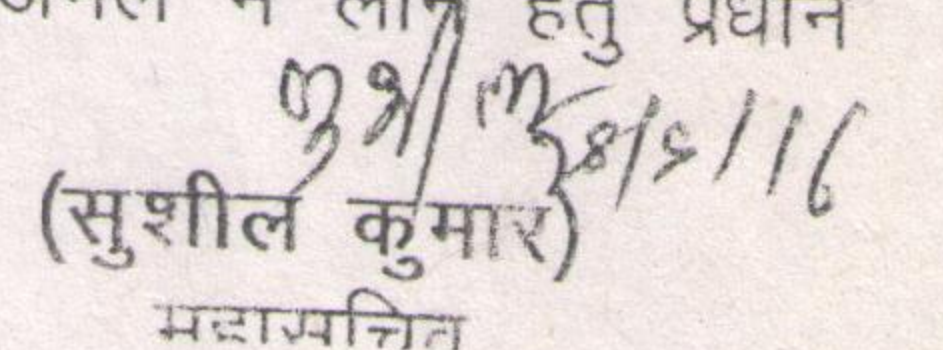 में लाने हेतु प्रधान
8/6/16
(सुशील कुमार)
महासचिव